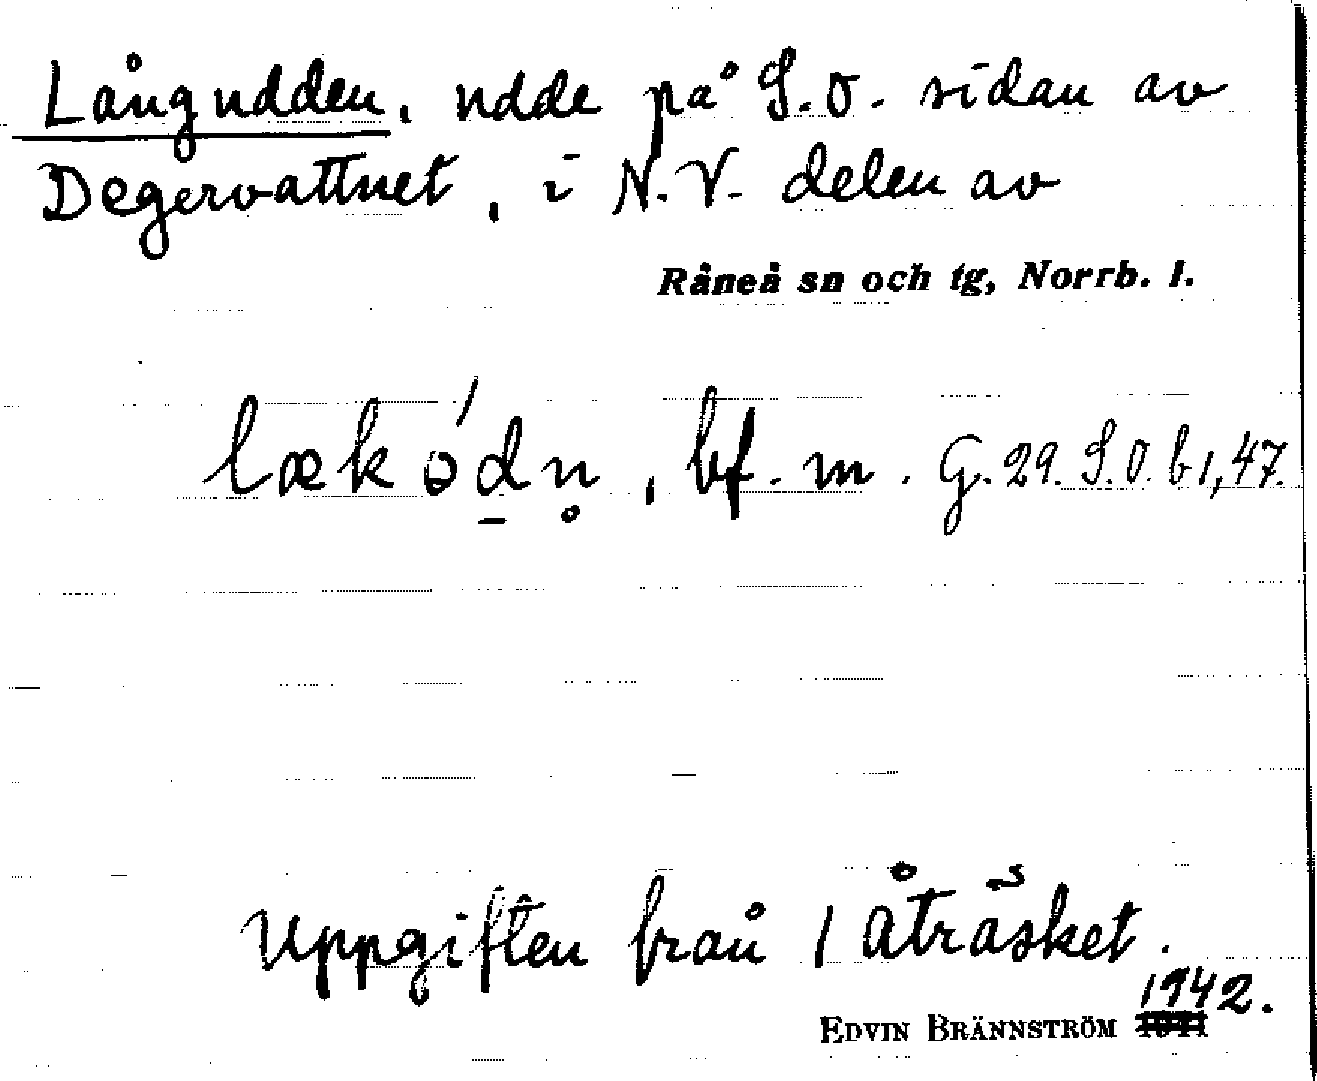 Långudden, udde på S.O. sidan av
Degervattnet, i N.V. delen av
Råneå sn och tg, Norrb. l.
lækód̠n̥, bf. m. G. 29. S.O. b 1, 47.
Uppgiften från 1 Åträsket.
1942.
EDVIN BRÄNNSTRÖM 1941